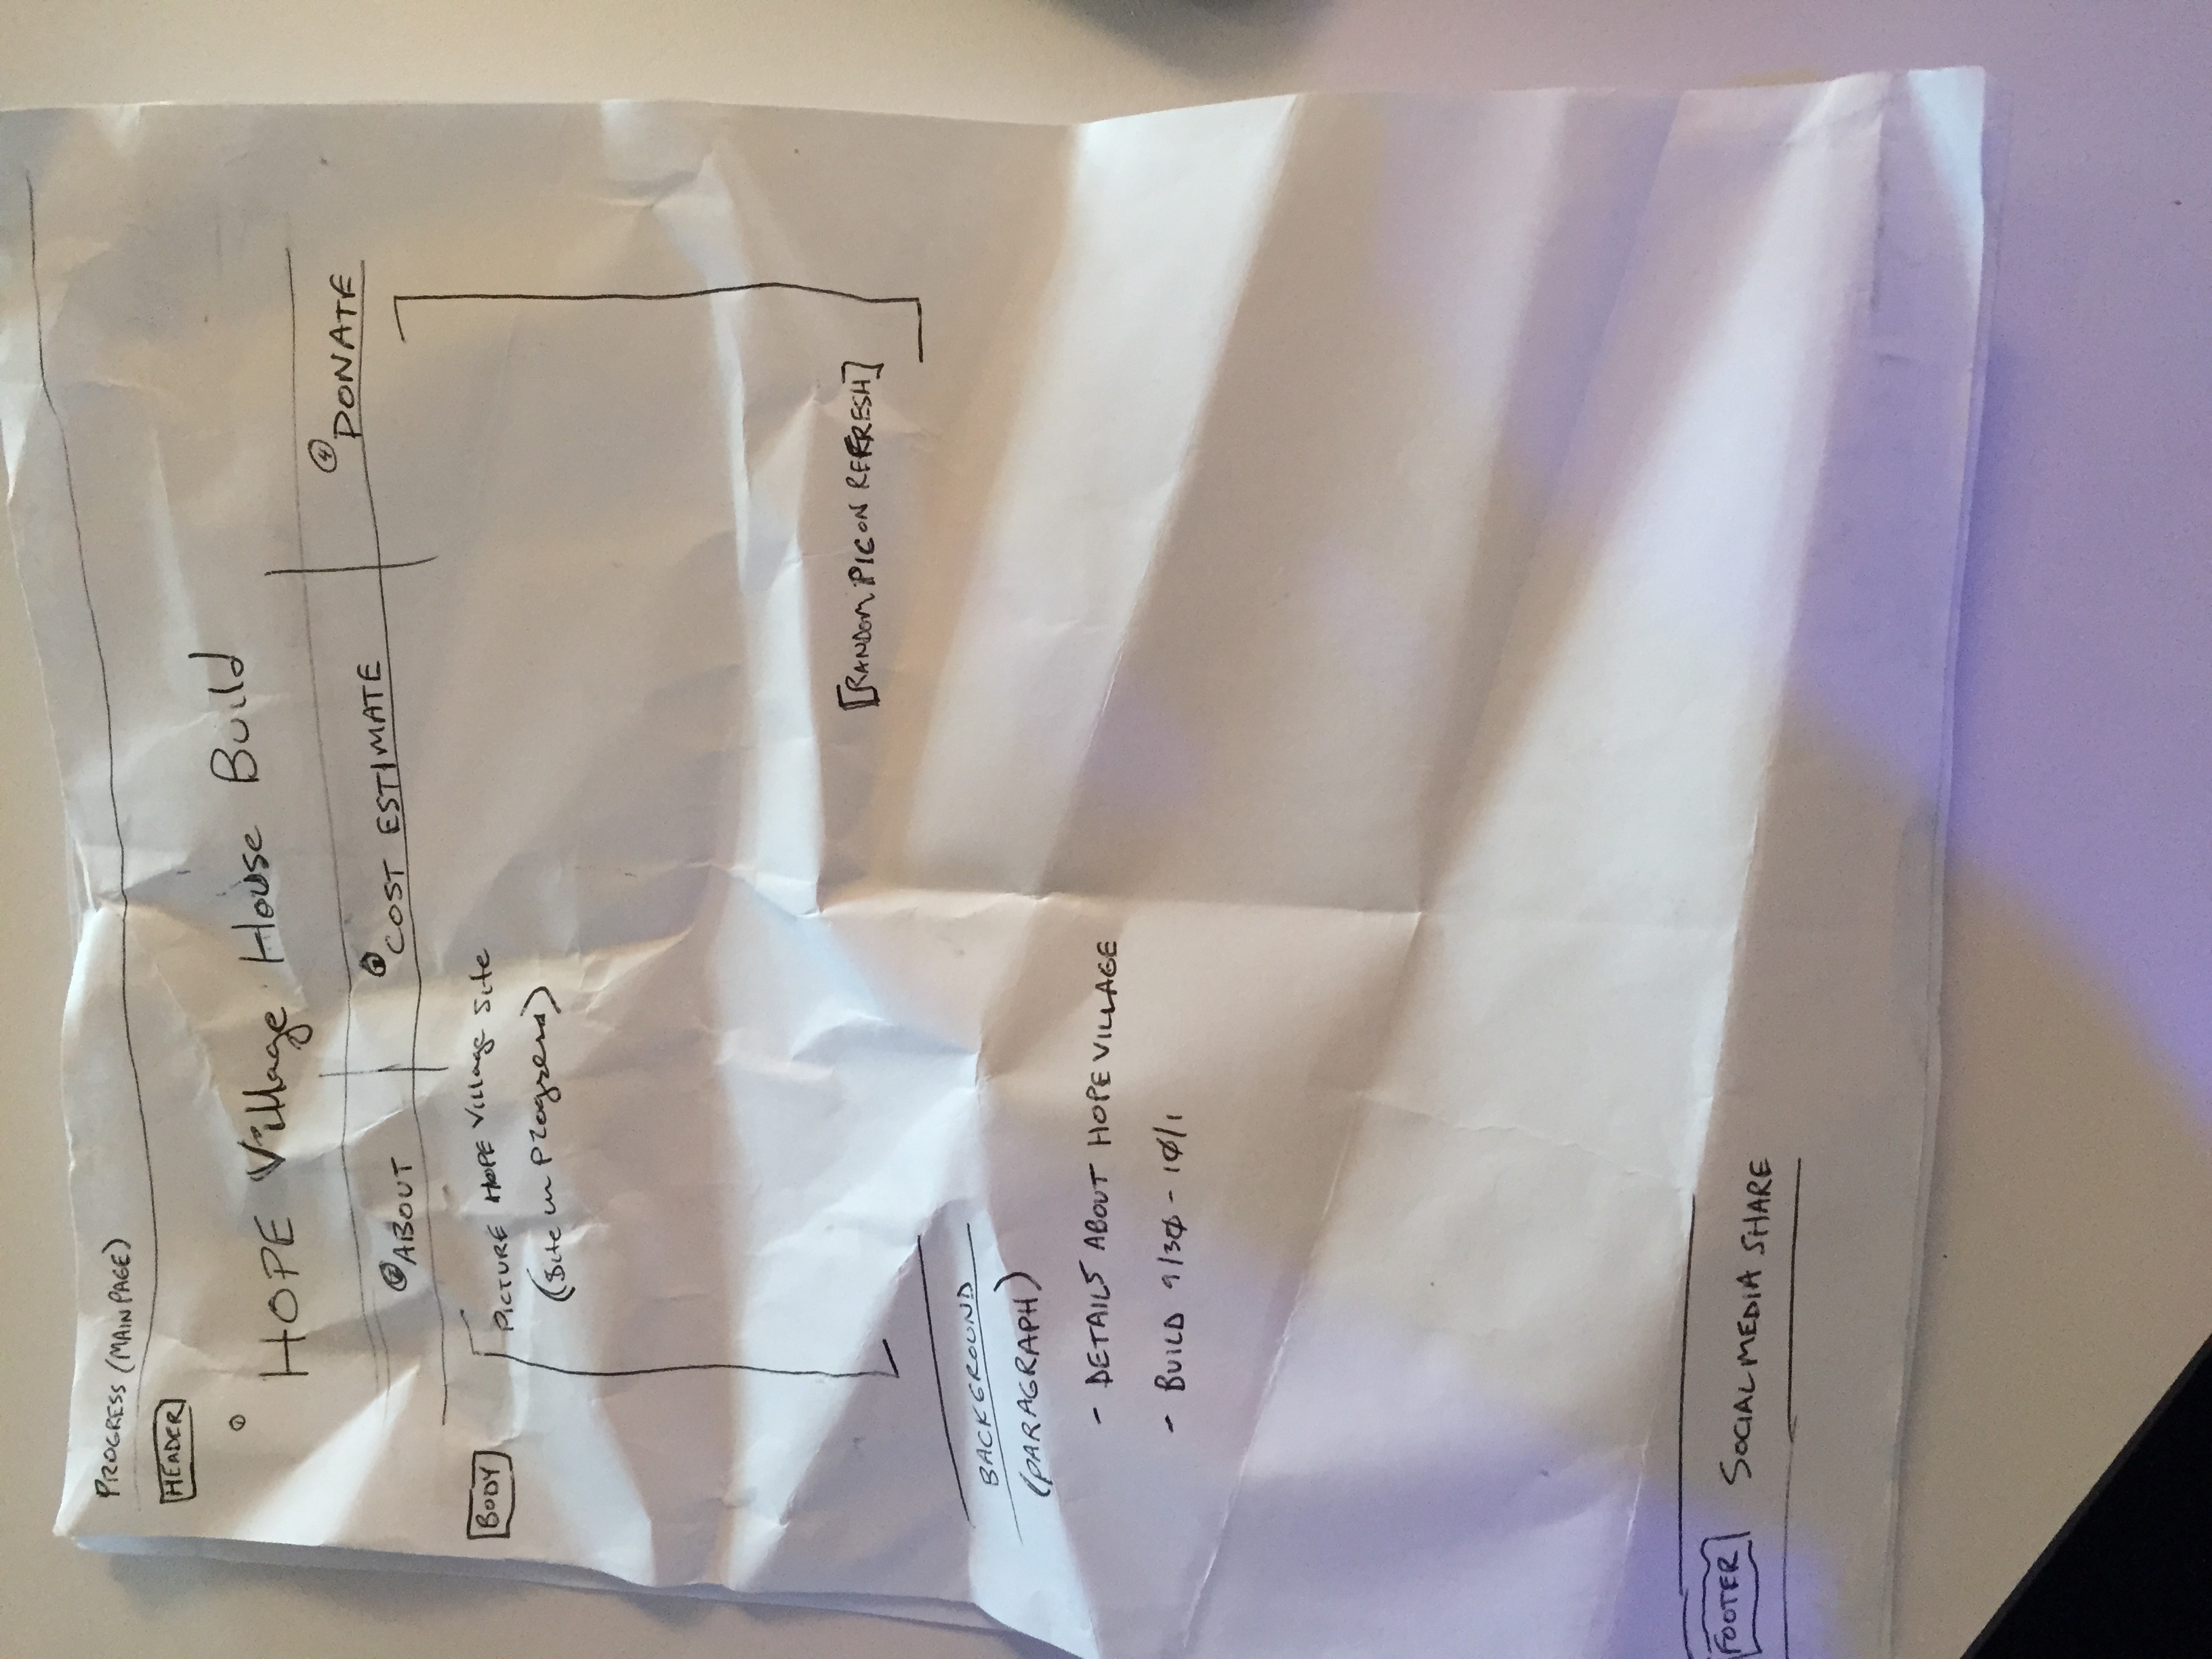 PROGRESS (MAIN PAGE)
HEADER
① HOPE Village House Build
② ABOUT
③ COST ESTIMATE
④ DONATE
BODY
PICTURE HOPE Village Site
(Site in Progress)
[RANDOM PIC ON REFRESH]
BACKGROUND
(PARAGRAPH)
- DETAILS ABOUT HOPE VILLAGE
- BUILD 9/30 - 10/1
FOOTER
SOCIAL MEDIA SHARE